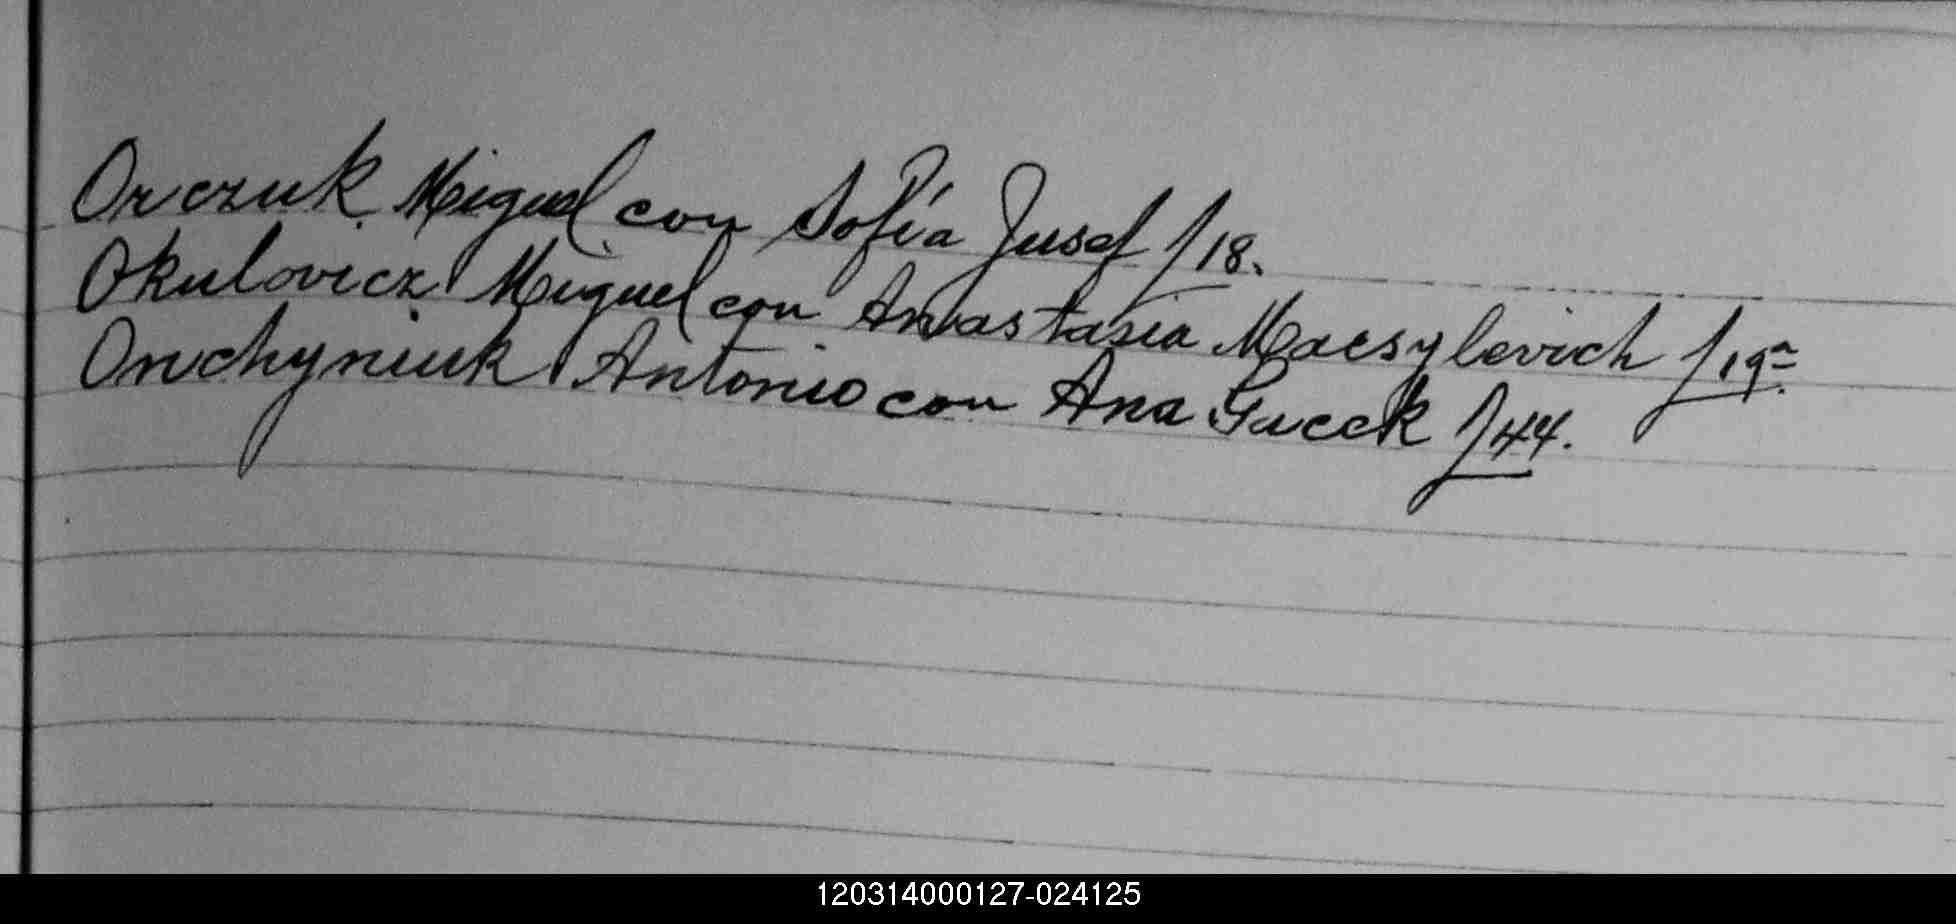 Orczuk Miguel con Sofía Jusef f/18.
Okulovicz Miguel con Anastasia Maesylevich f/19ª
Onchyniuk Antonio con Ana Gucek f/44.
120314000127-024125